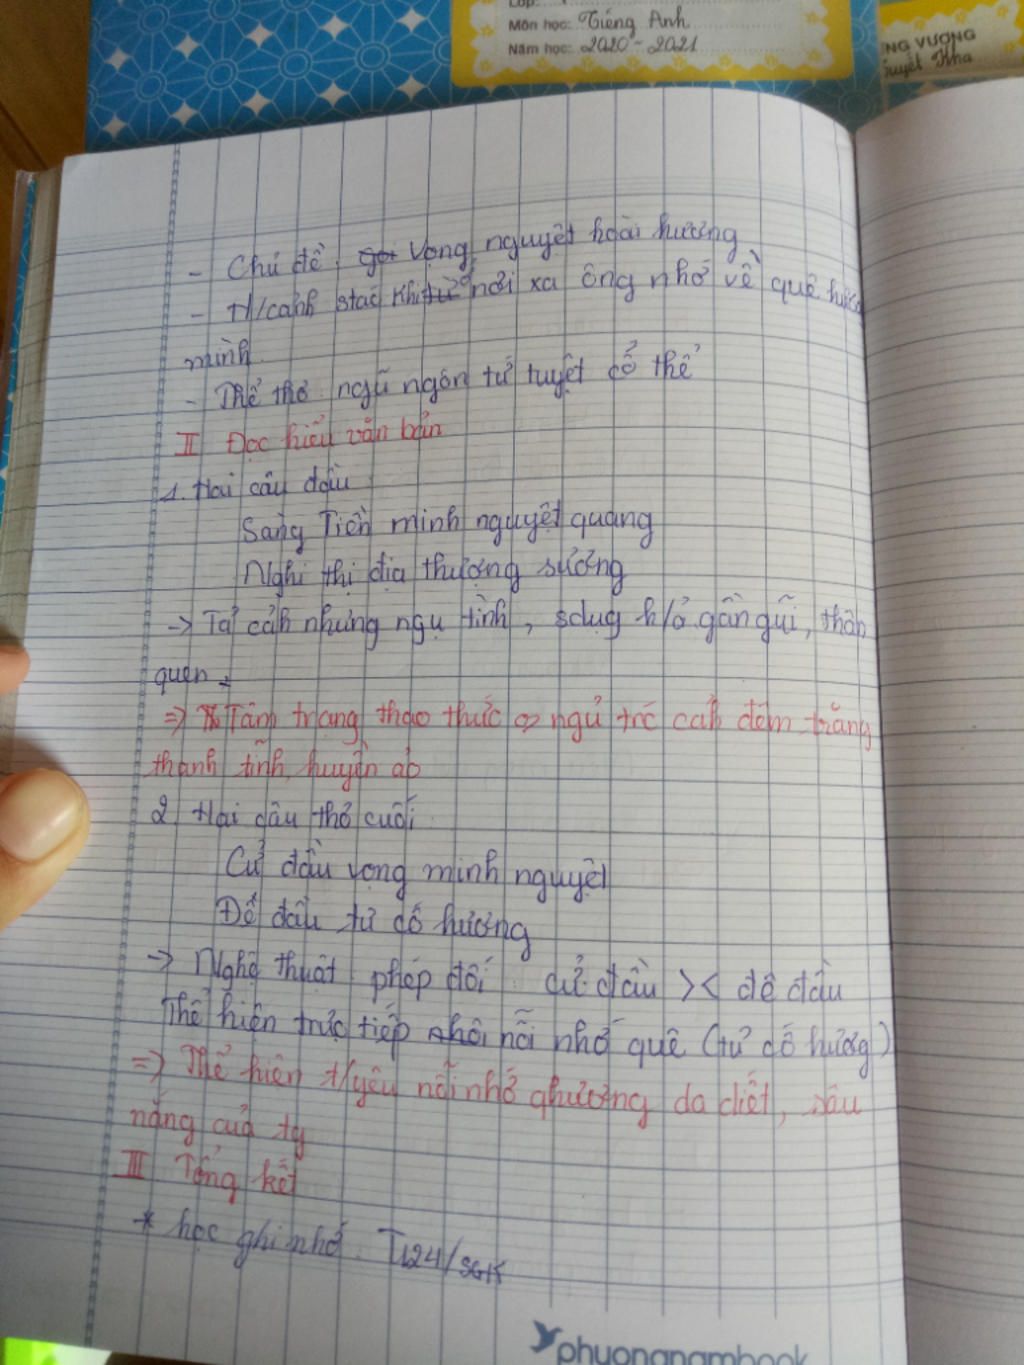 Lớp:
Môn học: Tiếng Anh
Năm học: 2020 - 2021
NG VƯƠNG
Tuyết Kha
- Chủ đề: Vọng nguyệt hoài hương
- H/cảnh stác khi từ nơi xa ông nhớ về quê hươ
mình
- Thể thơ ngũ ngôn tứ tuyệt cổ thể
II Đọc hiểu văn bản
1. Hai câu đầu
Sàng Tiền minh nguyệt quang
Nghi thị địa thượng sương
-> Tả cảnh nhưng ngụ tình, sdụg h/ả gần gũi, thân
quen.
=> Tâm trạng thao thức ngủ trc cảnh đêm trăng
thanh tĩnh, huyền ảo
2 Hai câu thơ cuối
Cử đầu vọng minh nguyệt
Đê đầu tư cố hương
-> Nghệ thuật phép đối cử đầu >< đê đầu
Thể hiện trực tiếp nỗi nhớ quê (tư cố hương)
=> Thể hiện t/yêu nỗi nhớ qhương da diết, sâu
nặng của tg
III Tổng kết
* học ghi nhớ. T124/SGK
phuongnambook